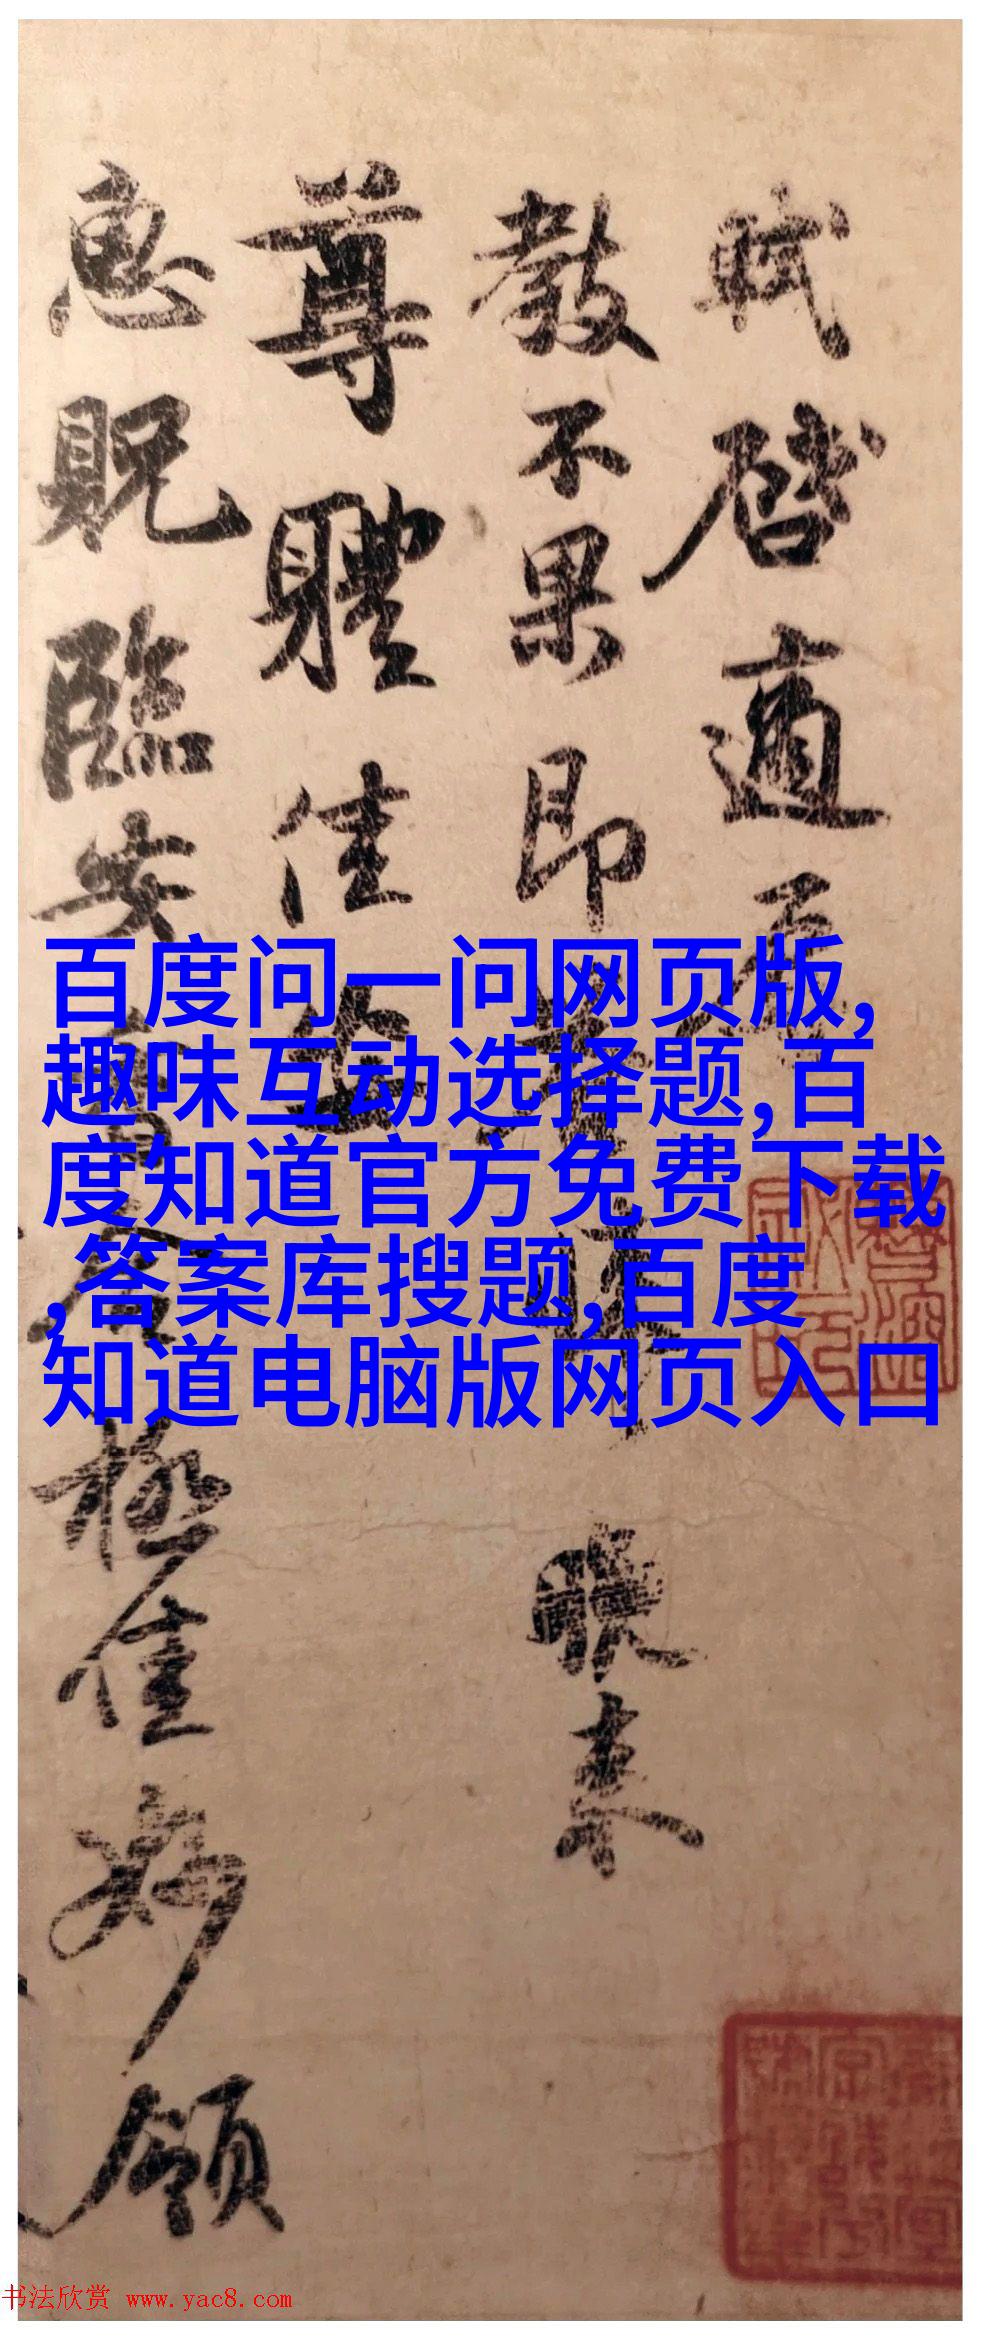 軾啓適
教不果即 晚来
尊體佳
惠貺臨安 極佳妙領
百度问一问网页版,
趣味互动选择题,百
度知道官方免费下载
,答案库搜题,百度
知道电脑版网页入口
书法欣赏 www.yac8.com